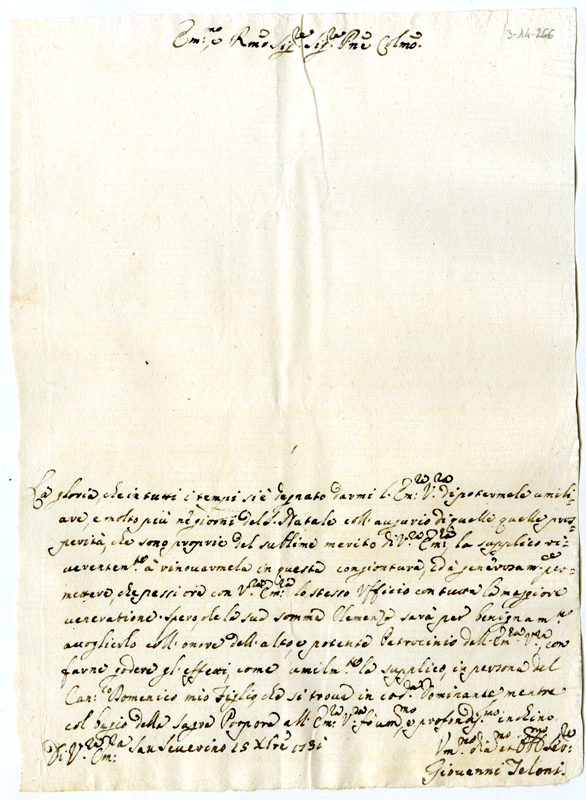 3-14-266
Em:mo e Rmo Sig:re Sig:re Pne Colmo.
La gloria, che in tutti i tempi si è degnato darmi l'Em:za V:ra di potermele umili=
are, e molto più ne giorni del S. Natale coll'augurio di quelle quelle pros
perità, che sono proprie del sublime merito di V:ra Em:za la supplico ri=
verentem:te à rinovarmela in questa congiontura, ed à per=
mettere, che passi ora con V:ra Em:za lo stesso Ufficio con tutta la maggiore
venerazione. Spero, che la sua somma Clemenza sarà per benignam:te
accoglierlo coll'onore dell'alto, e potente Patrocinio dell'Em:za V:ra, con
farne godere gl'effetti, come umilm:te la supplico, in persona del
Can:co Domenico mio Figlio, che si trova in cod:a Dominante, mentre
col bagio della Sagra Porpora all'Em:za V:ra fo um:mo, e profondiss:mo inchino.
Di V:ra Em:za San Severino 15 Xbre 1731
Um:mo Div:mo et Obb:mo Ser:
Giovanni Teloni.